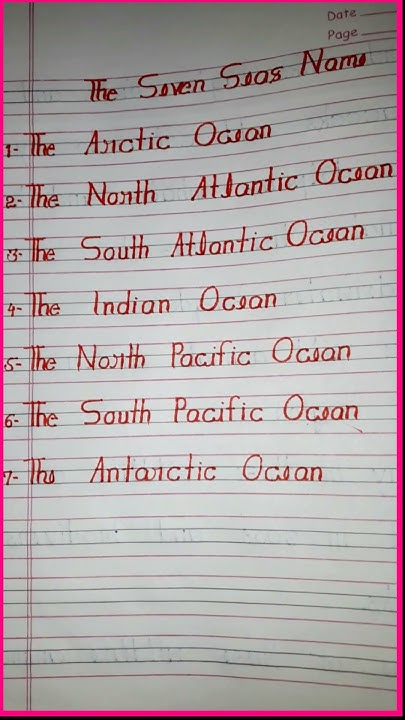 Date
Page
The Seven Seas Name
1- The Arctic Ocean
2- The North Atlantic Ocean
3- The South Atlantic Ocean
4- The Indian Ocean
5- The North Pacific Ocean
6- The South Pacific Ocean
7- The Antarctic Ocean